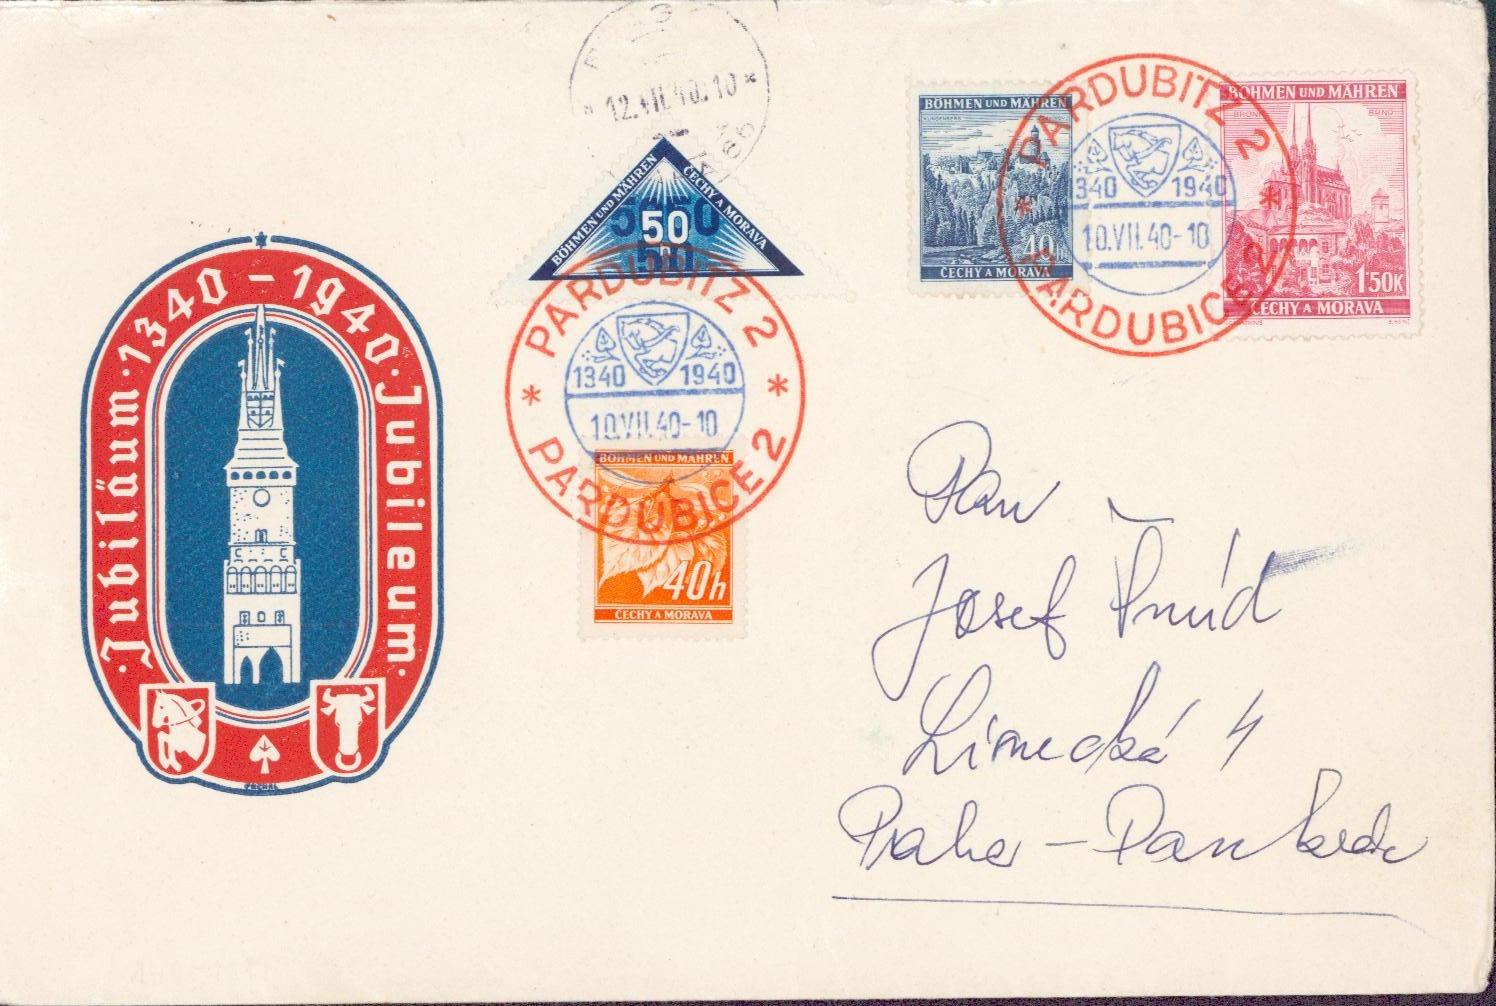 12.VII.40.10
BÖHMEN UND MÄHREN
ČECHY A MORAVA
50
BÖHMEN UND MÄHREN
40
ČECHY A MORAVA
BÖHMEN UND MÄHREN
BRÜNN BRNO
1'50K
ČECHY A MORAVA
PARDUBITZ 2
1340 1940
10.VII.40-10
PARDUBICE 2
PARDUBITZ 2
1340 1940
10.VII.40-10
PARDUBICE 2
BÖHMEN UND MÄHREN
40h
ČECHY A MORAVA
Jubiläum · 1340 – 1940 · Jubileum
Pan
Josef
4
Praha -